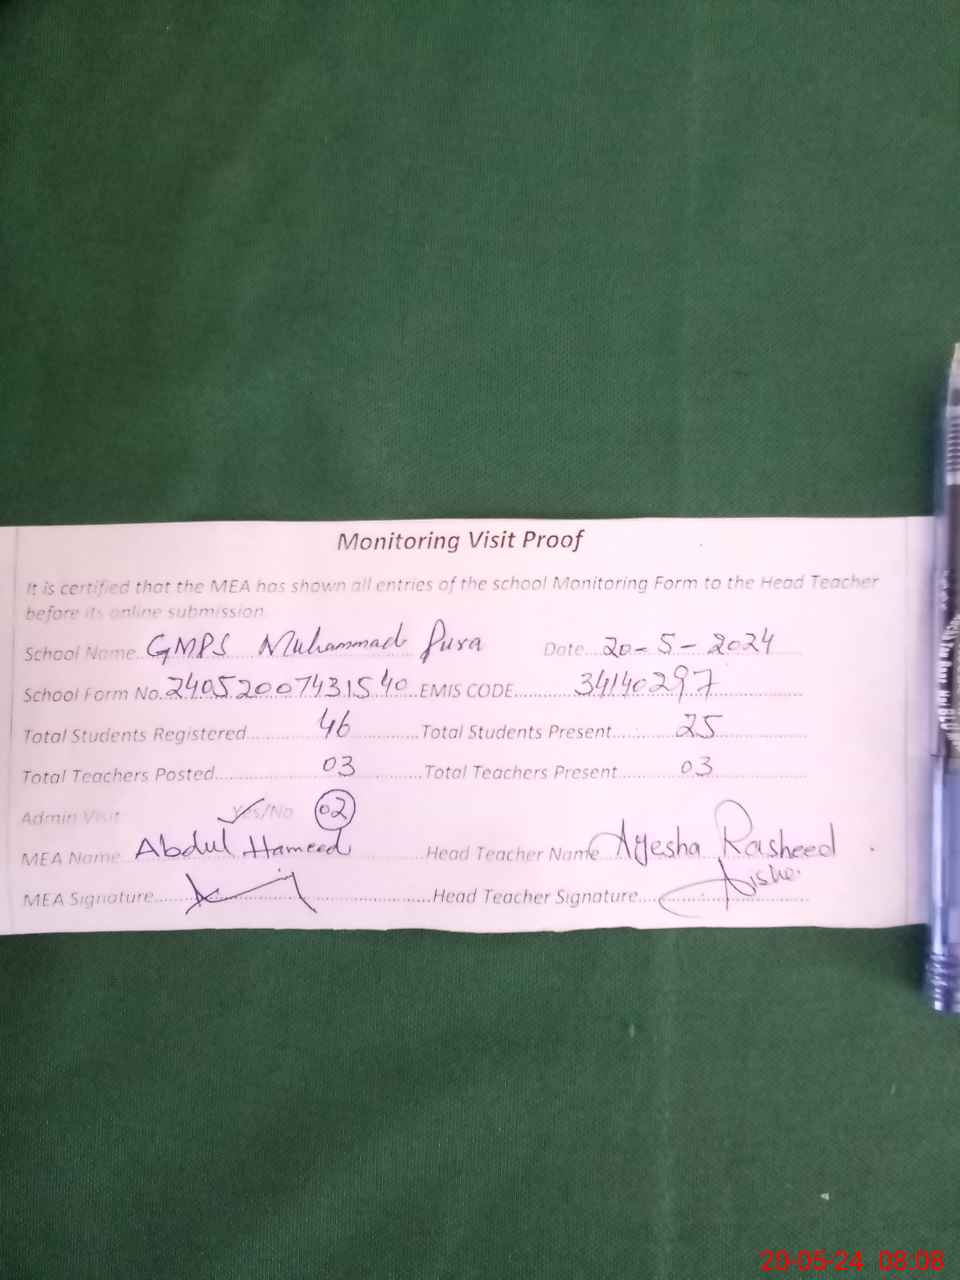 Monitoring Visit Proof
It is certified that the MEA has shown all entries of the school Monitoring Form to the Head Teacher
before its online submission
School Name GMPS Muhammad Pura Date 20-5-2024
School Form No. 24052007431540 EMIS CODE 34140297
Total Students Registered 46 Total Students Present 25
Total Teachers Posted 03 Total Teachers Present 03
Admin Visit Yes/No 02
MEA Name Abdul Hameed Head Teacher Name Ayesha Rasheed
MEA Signature Head Teacher Signature Aisha
20-05-24 08:08